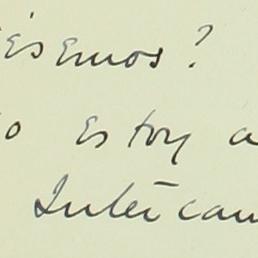 ésemos?
o estoy a
Inter cam